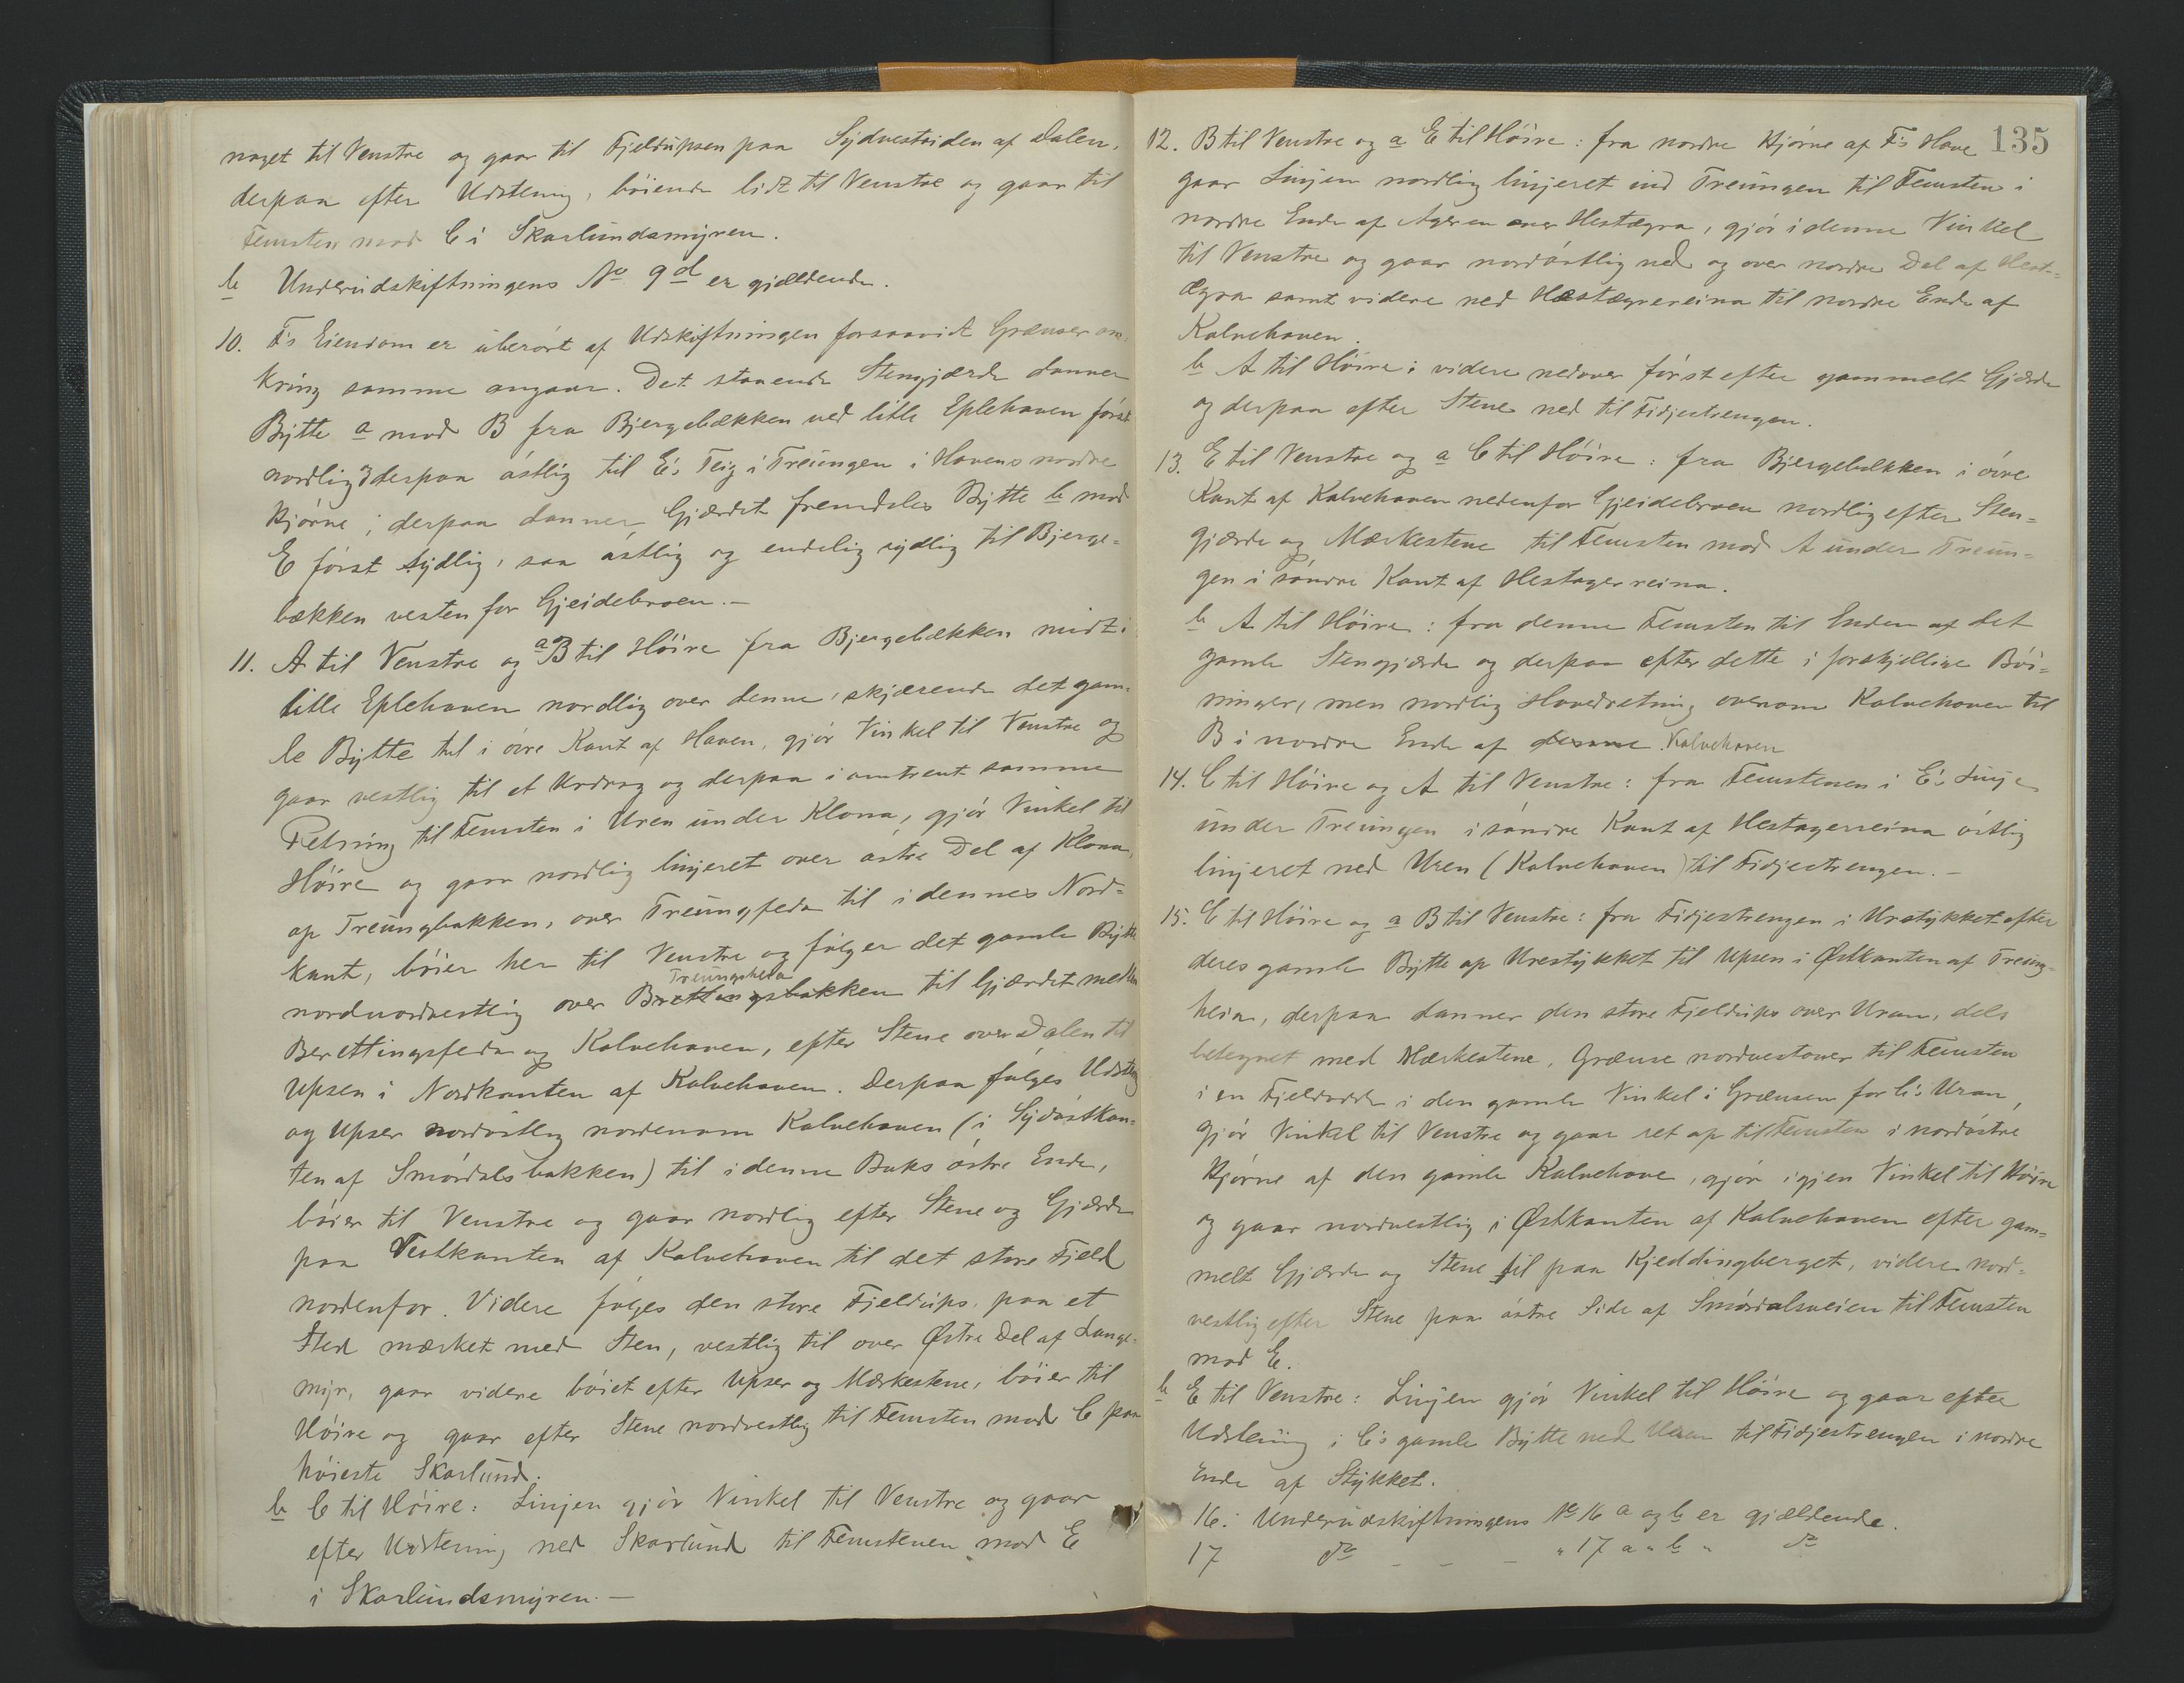 noget til Venstre og gaar til Fjeldupsen paa Sydvestsiden af Dalen,
derpaa efter Udstening, bøiende lidt til Venstre og gaar til
Femsten mod C i Skarlundsmyren.
b Underudskiftningens No 9d er gjældende.
10. F's Eiendom er uberørt af Udskiftningen forsaavidt Grænser om-
kring samme angaar. Det staaende Stengjærde danner
Bytte a mod B fra Bjergebækken ved litle Eplehaven først
nordlig og derpaa østlig til E's Teig i Treungen i Havens nordre
Hjørne; derpaa danner Gjærdet fremdeles Bytte b mod
E først sydlig, saa østlig og endelig sydlig til Bjerge-
bækken vesten for Gjeidebroen.-
11. A til Venstre og a B til Høire fra Bjergebækken midt i
litle Eplehaven nordlig over denne, skjærende det gam-
le Bytte til i øvre Kant af Haven, gjør Vinkel til Venstre og
gaar vestlig til et Urdrag og derpaa i omtrent samme
Retning til Femsten i Uren under Klova, gjør Vinkel til
Høire og gaar nordlig linjeret over østre Del af Klova,
op Treungbakken, over Treungfeda til i dennes Nord-
kant, bøier her til Venstre og følger det gamle Bytte
Treungheia
nordnordvestlig over Brettingsbakken til Gjærdet mellem
Berettingsfeda og Kalvehaven, efter Stene over Dalen til
Upsen i Nordkanten af Kalvehaven. Derpaa følges Udstening
og Upser nordøstlig nordenom Kalvehaven (i Sydøstkan-
ten af Smørdalsbakken) til i denne Baks østre Ende,
bøier til Venstre og gaar nordlig efter Stene og Gjærde
paa Vestkanten af Kalvehaven til det store Fjeld
nordenfor. Videre følges den store Fjeldups, paa et
Sted mærket med Sten, vestlig til over Østre Del af Lange-
myr, gaar videre bøiet efter Upser og Mærkestene, bøier til
Høire og gaar efter Stene nordvestlig til Femsten mod C paa
høieste Skarlund.
b C til Høire: Linjen gjør Vinkel til Venstre og gaar
efter Udstening ned Skarlund til Femstenen mod E
i Skarlundsmyren.-
135
12. B til Venstre og a E til Høire: fra nordre Hjørne af F's Have
gaar Linjen nordlig linjeret ind Treungen til Femsten i
nordre Ende af Ageren over Hestægra, gjør i denne Vinkel
til Venstre og gaar nordøstlig ned og over nordre Del af Hest-
ægra samt videre ned Hestægrereina til nordre Ende af
Kalvehaven.
b A til Høire: videre nedover først efter gammelt Gjærde
og derpaa efter Stene ned til Fidjestrengen.
13. E til Venstre og a C til Høire: fra Bjergebækken i øvre
Kant af Kalvehaven nedenfor Gjeidebroen nordlig efter Sten-
gjærde og Mærkestene til Femsten mod A under Treun-
gen i søndre Kant af Hestagerreina.
b A til Høire: fra denne Femsten til Enden af det
gamle Stengjærde og derpaa efter dette i forskjellige Bøi-
ninger, men nordlig Hovedretning ovenom Kalvehaven til
B i nordre Ende af denne Kalvehaven
14. C til Høire og A til Venstre: fra Femstenen i E's Linje
under Treungen i søndre Kant af Hestagerreina østlig
linjeret ned Uren (Kalvehaven) til Fidjestrengen.-
15. C til Høire og a B til Venstre: fra Fidjestrengen i Urstykket efter
deres gamle Bytte op Urestykket til Upsen i Østkanten af Treung-
heia, derpaa danner den store Fjeldups over Uran, dels
betegnet med Mærkestene, Grænse nordvestover til Femsten
i en Fjeldodde i den gamle Vinkel i Grænsen for C's Uran,
gjør Vinkel til Venstre og gaar ret op til Femsten i nordøstre
Hjørne af den gamle Kalvehave, gjør igjen Vinkel til Høire
og gaar nordvestlig i Østkanten af Kalvehaven efter gam-
melt Gjærde og Stene til paa Kjeddingberget, videre nord-
vestlig efter Stene paa østre Side af Smørdalsveien til Femsten
mod E.
b E til Venstre: Linjen gjør Vinkel til Høire og gaar efter
Udstening i C's gamle Bytte ned Uran til Fidjestrengen i nordre
Ende af Stykket.
16. Underudskiftningens No 16 a og b er gjældende.
17 do - - - " 17 a " b " do